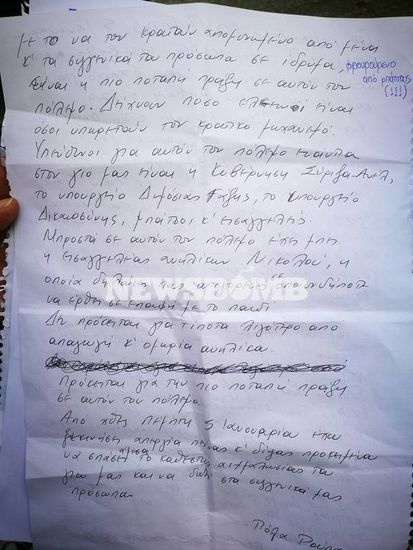 Με το να τον κρατούν απομονωμένο από μένα
κ' τα συγγενικά του πρόσωπα σε ίδρυμα, φρουρούμενο
από μπάτσους
(!!!)
είναι η πιο ποταπή πράξη σε αυτόν τον
πόλεμο. Δείχνουν πόσο ελεεινοί είναι
όσοι υπηρετούν τον κρατικό μηχανισμό.
Υπεύθυνοι για αυτόν τον πόλεμο ενάντια
στον γιο μας είναι η Κυβέρνηση Σύριζα-Ανελ,
το υπουργείο Δημόσιας Τάξης, το υπουργείο
Δικαιοσύνης, μπάτσοι κ' εισαγγελείς.
Μπροστά σε αυτόν τον πόλεμο έχει μπει
η εισαγγελέας ανηλίκων Νικολού, η
οποία μας απαγορεύει
να έρθει σε επαφή με το παιδί.
Δεν πρόκειται για τίποτα λιγότερο από
απαγωγή κ' ομηρία ανηλίκου.
Πρόκειται για την πιο ποταπή πράξη
σε αυτόν τον πόλεμο.
Από χθες Πέμπτη 5 Ιανουαρίου έχω
ξεκινήσει απεργία πείνας κ' δίψας προκειμένου
να σπάσει άμεσα το καθεστώς αιχμαλωσίας του
γιου μας και να δοθεί στα συγγενικά μας
πρόσωπα.
Πόλα Ρούπα
NEWSBOMB